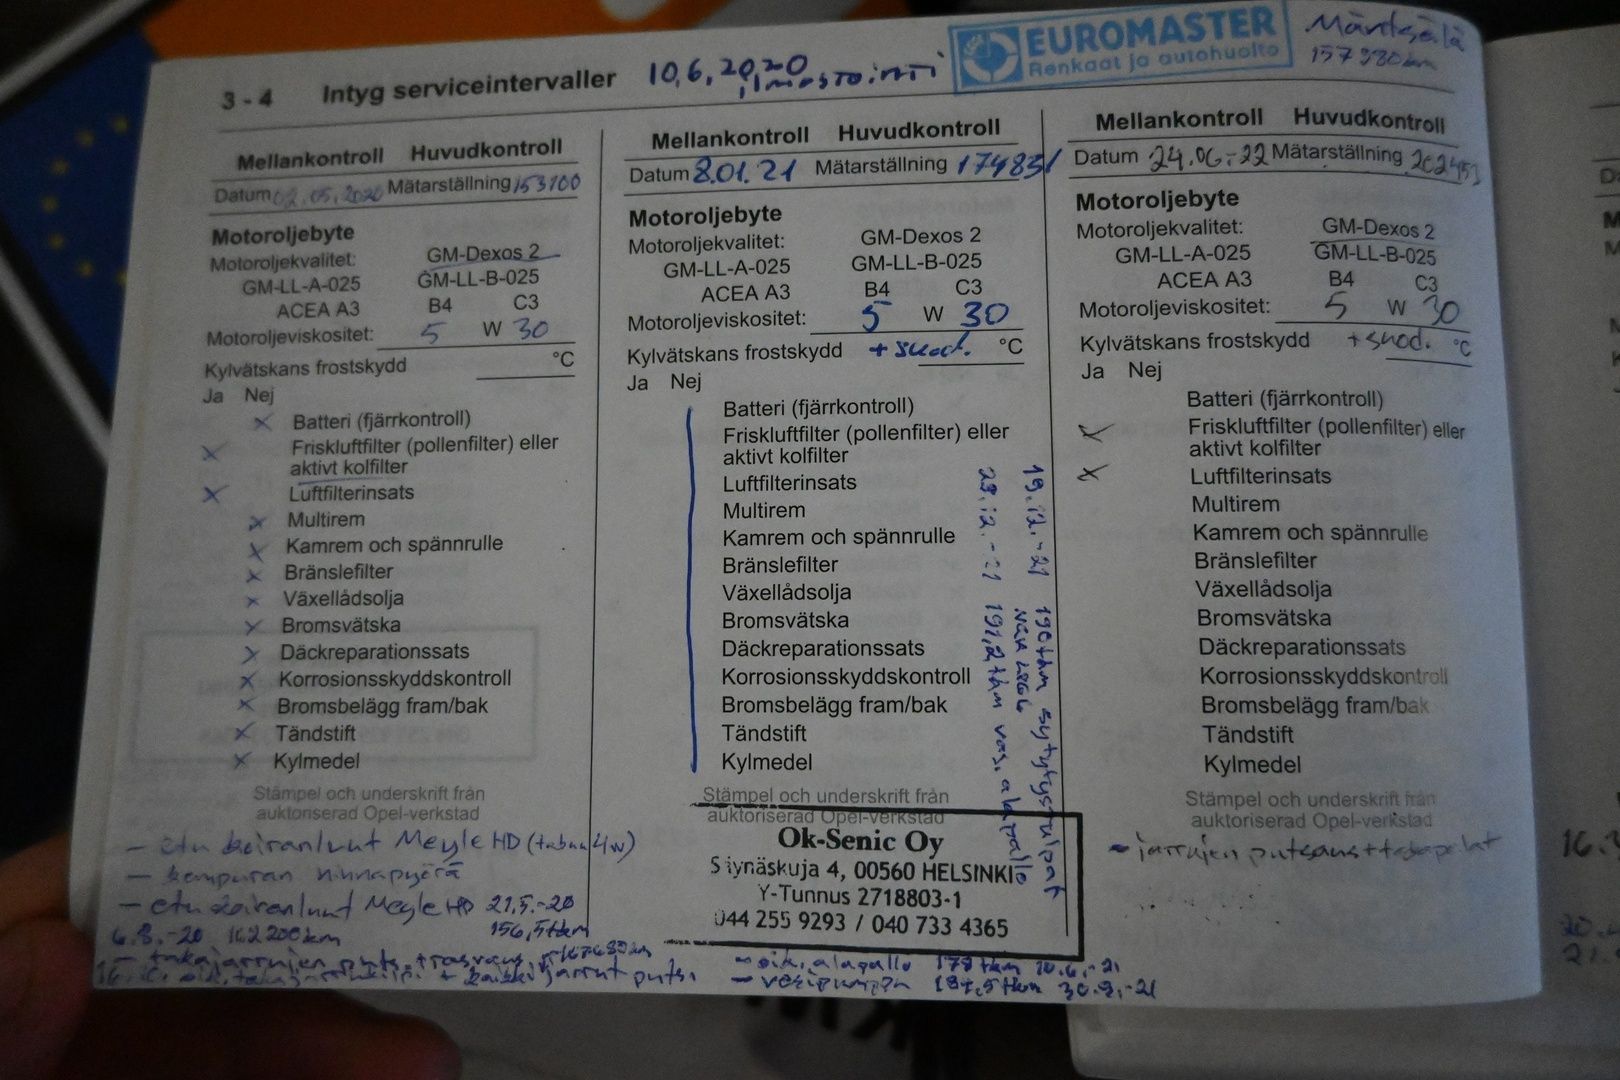 3 - 4 Intyg serviceintervaller 10.6.2020
ilmastointi
EUROMASTER
Renkaat ja autohuolto
Mäntsälä
157980km
Mellankontroll Huvudkontroll
Datum 02.05.2020 Mätarställning 153100
Motoroljebyte
Motoroljekvalitet: GM-Dexos 2
GM-LL-A-025 GM-LL-B-025
ACEA A3 B4 C3
Motoroljeviskositet: 5 W 30
Kylvätskans frostskydd °C
Ja Nej
x Batteri (fjärrkontroll)
x Friskluftfilter (pollenfilter) eller
aktivt kolfilter
x Luftfilterinsats
x Multirem
x Kamrem och spännrulle
x Bränslefilter
x Växellådsolja
x Bromsvätska
x Däckreparationssats
x Korrosionsskyddskontroll
x Bromsbelägg fram/bak
x Tändstift
x Kylmedel
Stämpel och underskrift från
auktoriserad Opel-verkstad
- etu koiranluut Meyle HD (takuu 4v)
- kampuran hihnapyörä
- etu koiranluut Meyle HD 21,5.-20
156,5tkm
6.8.-20 162200km
- takajarrujen puts.
Mellankontroll Huvudkontroll
Datum 8.01.21 Mätarställning 174831
Motoroljebyte
Motoroljekvalitet: GM-Dexos 2
GM-LL-A-025 GM-LL-B-025
ACEA A3 B4 C3
Motoroljeviskositet: 5 W 30
Kylvätskans frostskydd + suod. °C
Ja Nej
Batteri (fjärrkontroll)
Friskluftfilter (pollenfilter) eller
aktivt kolfilter
Luftfilterinsats
Multirem
Kamrem och spännrulle
Bränslefilter
Växellådsolja
Bromsvätska
Däckreparationssats
Korrosionsskyddskontroll
Bromsbelägg fram/bak
Tändstift
Kylmedel
19.12.-21 190tkm sytytystulpat
23.12.-21 191,2tkm vas. alapallo
Stämpel och underskrift från
auktoriserad Opel-verkstad
Ok-Senic Oy
4, 00560 HELSINKI
Y-Tunnus 2718803-1
044 255 9293 / 040 733 4365
- oik. alapallo 178tkm 10.6.-21
- vesipumppu 187,5tkm 30.9.-21
Mellankontroll Huvudkontroll
Datum 24.06.-22 Mätarställning 202453
Motoroljebyte
Motoroljekvalitet: GM-Dexos 2
GM-LL-A-025 GM-LL-B-025
ACEA A3 B4 C3
Motoroljeviskositet: 5 W 30
Kylvätskans frostskydd + suod. °C
Ja Nej
Batteri (fjärrkontroll)
x Friskluftfilter (pollenfilter) eller
aktivt kolfilter
x Luftfilterinsats
Multirem
Kamrem och spännrulle
Bränslefilter
Växellådsolja
Bromsvätska
Däckreparationssats
Korrosionsskyddskontroll
Bromsbelägg fram/bak
Tändstift
Kylmedel
Stämpel och underskrift från
auktoriserad Opel-verkstad
- jarrujen putsaus + takapalat